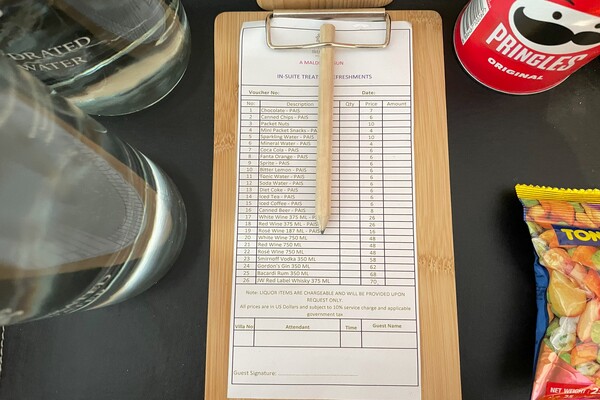 DRATED
WATER
PRINGLES
ORIGINAL
TON
NET WEIGHT
A MALDI
IN-SUITE TREAT REFRESHMENTS
Voucher No: Date:
No: Description Qty Price Amount
1 Chocolate - PAIS 7
2 Canned Chips - PAIS 6
3 Packet Nuts 10
4 Mini Packet Snacks - PA 4
5 Sparkling Water - PAIS 10
6 Mineral Water - PAIS 4
7 Coca Cola - PAIS 6
8 Fanta Orange - PAIS 6
9 Sprite - PAIS 6
10 Bitter Lemon - PAIS 6
11 Tonic Water - PAIS 6
12 Soda Water - PAIS 6
13 Diet Coke - PAIS 6
14 Iced Tea - PAIS 6
15 Iced Coffee - PAIS 6
16 Canned Beer - PAIS 8
17 White Wine 375 ML - P 26
18 Red Wine 375 ML - PAI 26
19 Rosé Wine 187 ML - PAIS 16
20 White Wine 750 ML 48
21 Red Wine 750 ML 48
22 Rosé Wine 750 ML 48
23 Smirnoff Vodka 350 ML 58
24 Gordon's Gin 350 ML 62
25 Bacardi Rum 350 ML 68
26 JW Red Label Whisky 375 ML 70
Note: LIQUOR ITEMS ARE CHARGEABLE AND WILL BE PROVIDED UPON
REQUEST ONLY.
All prices are in US Dollars and subject to 10% service charge and applicable
government tax
Villa No Attendant Time Guest Name
Guest Signature: